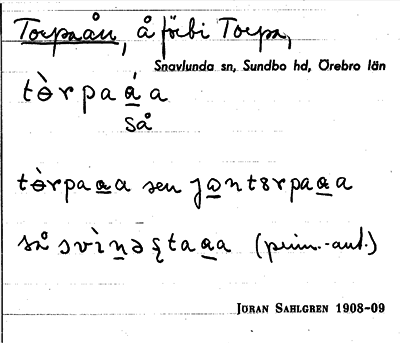 Torpaån, å förbi Torpa,
Snavlunda sn, Sundbo hd, Örebro län
tɵ̀rpaá̱a
så
tɵ̀rpaa̱a sen ja̱ntɵrpaa̱a
så svìṉə ʂtaa̱a (prim.-ant.)
JÖRAN SAHLGREN 1908-09